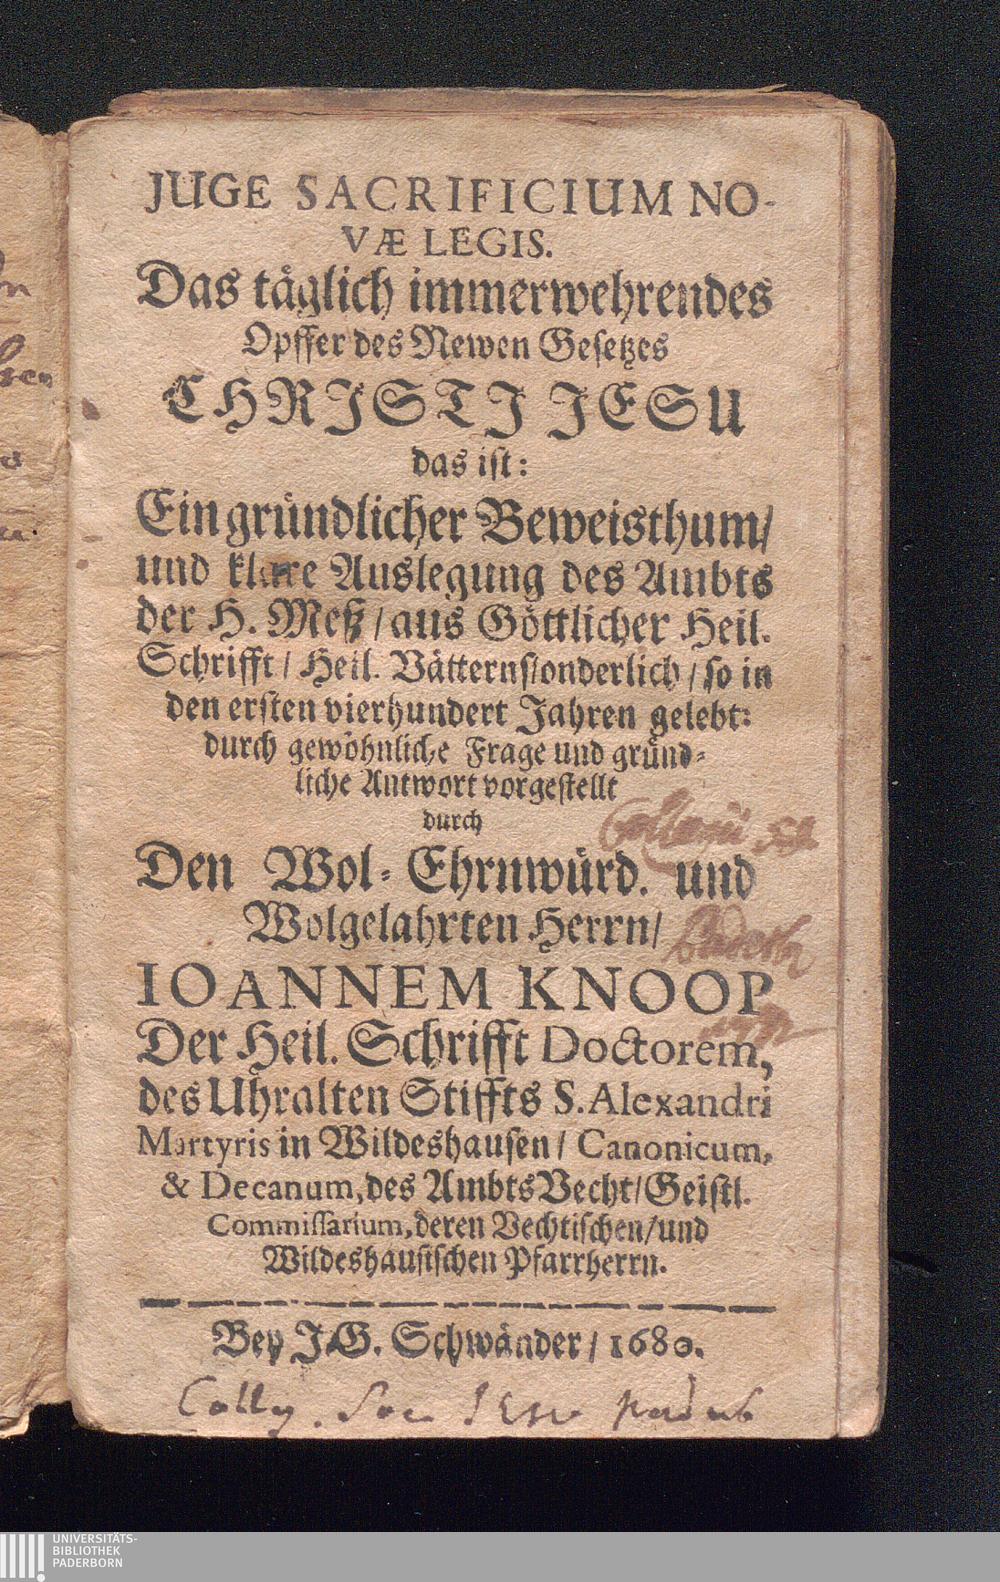 JUGE SACRIFICIUM NO-
VÆ LEGIS.
Das täglich immerwehrendes
Opffer des Newen Gesetzes
CHRISTI JESU
das ist:
Ein gründlicher Beweisthum/
und klare Auslegung des Ambts
der H. Meß/ aus Göttlicher Heil.
Schrifft/ Heil. Vätternsonderlich/ so in
den ersten vierhundert Jahren gelebt:
durch gewöhnliche Frage und gründ-
liche Antwort vorgestellt
durch
Den Wol-Ehrnwürd. und
Wolgelahrten Herrn/
IOANNEM KNOOP
Der Heil. Schrifft Doctorem,
des Uhralten Stiffts S. Alexandri
Martyris in Wildeshausen/ Canonicum,
& Decanum, des Ambts Vecht/ Geistl.
Commissarium, deren Vechtischen/ und
Wildeshausischen Pfarrherrn.
Bey J.G. Schwänder/ 1680.
UNIVERSITÄTS-
BIBLIOTHEK
PADERBORN